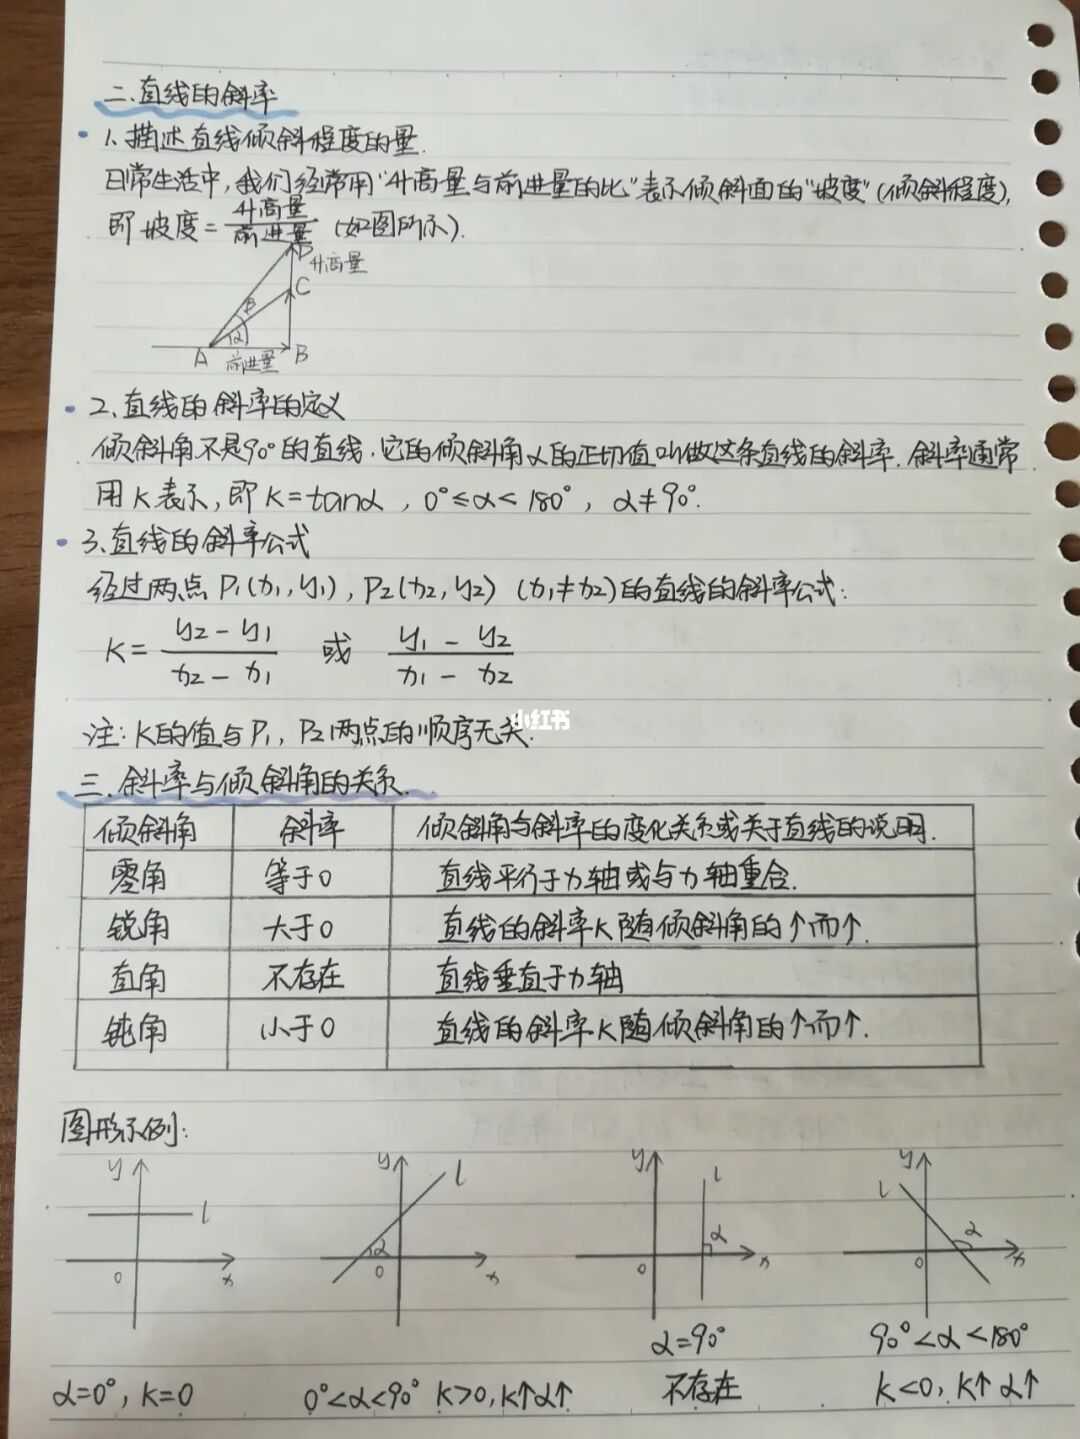 二、直线的斜率
1、描述直线倾斜程度的量.
日常生活中,我们经常用"升高量与前进量的比"表示倾斜面的"坡度"(倾斜程度),
即坡度=升高量/前进量 (如图所示).
D
升高量
C
β
α
A
前进量
B
2、直线的斜率的定义
倾斜角不是90°的直线.它的倾斜角α的正切值叫做这条直线的斜率.斜率通常
用K表示,即K=tanα,0°≤α<180°,α≠90°.
3、直线的斜率公式
经过两点P1(x1,y1),P2(x2,y2) (x1≠x2)的直线的斜率公式:
K=(y2-y1)/(x2-x1) 或 (y1-y2)/(x1-x2)
小红书
注:K的值与P1,P2两点的顺序无关.
三.斜率与倾斜角的关系.
倾斜角 斜率 倾斜角与斜率的变化关系或关于直线的说明.
零角 等于0 直线平行于x轴或与x轴重合.
锐角 大于0 直线的斜率K随倾斜角的↑而↑.
直角 不存在 直线垂直于x轴
钝角 小于0 直线的斜率K随倾斜角的↑而↑.
图形示例:
y l 0 x
y l α 0 x
y l α 0 x
y l α 0 x
α=90° 90°<α<180°
α=0°,K=0 0°<α<90° K>0,K↑α↑ 不存在 K<0,K↑α↑